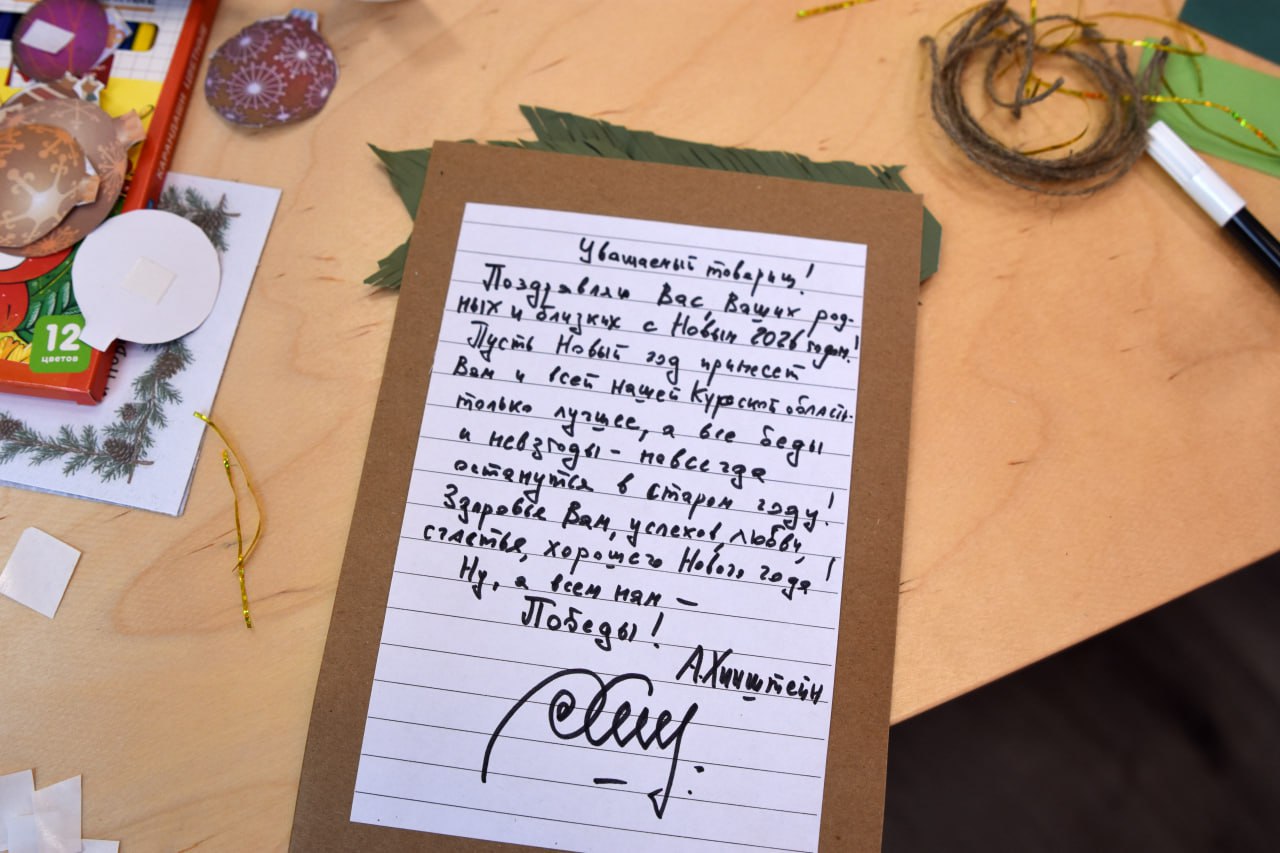 КАРАНДАШИ ЦВЕТНЫЕ
12
цветов
Уважаемый товарищ!
Поздравляю Вас, Ваших род-
ных и близких с Новым 2026 годом!
Пусть Новый год принесет
Вам и всей нашей Курской области
только лучшее, а все беды
и невзгоды - навсегда
останутся в старом году!
Здоровья Вам, успехов, любви,
счастья, хорошего Нового года!
Ну, а всем нам -
Победы!
А.Хинштейн